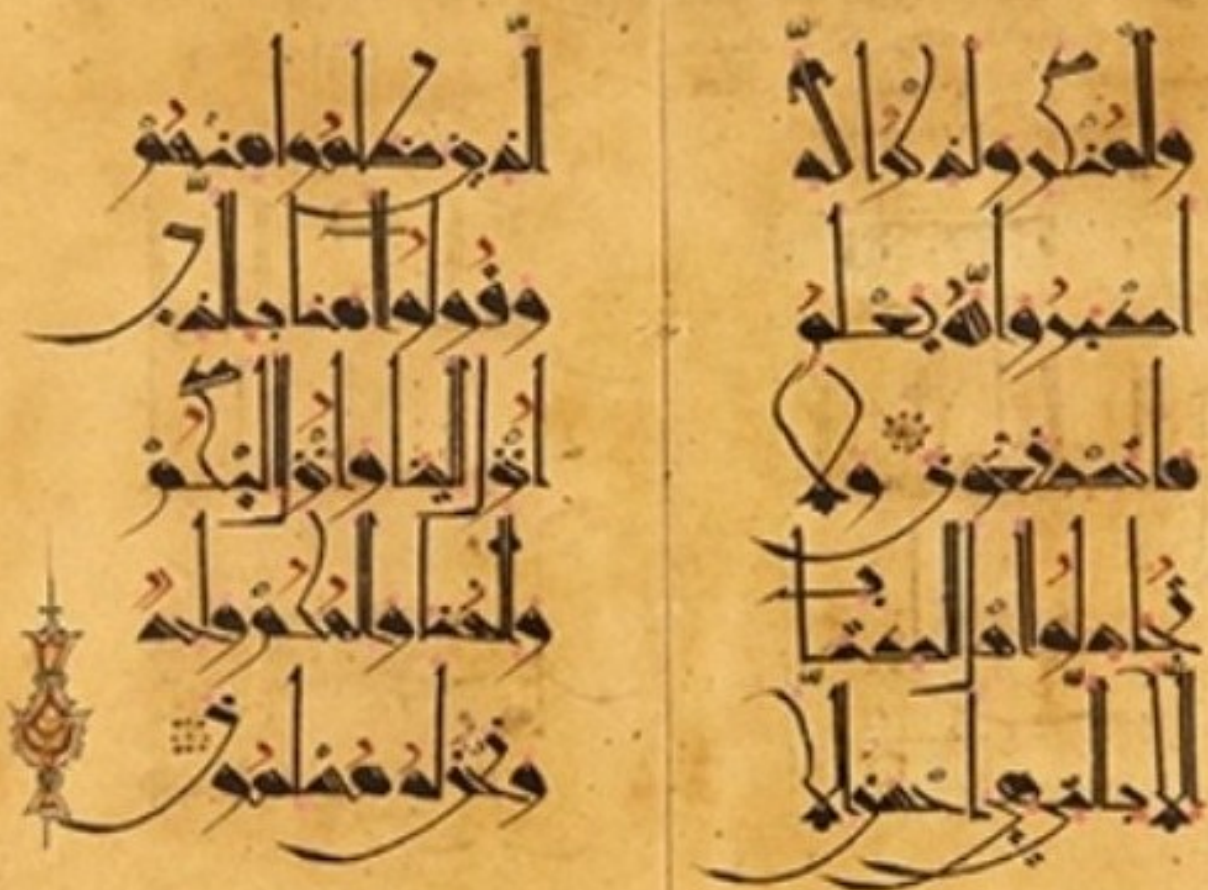 والمنكر ولذكر الله
اكبر والله يعلم
ما تصنعون ولا
تجادلوا اهل الكتاب
الا بالتي هي احسن الا
الذين ظلموا منهم
وقولوا امنا بالذي
انزل الينا وانزل اليكم
والهنا والهكم واحد
ونحن له مسلمون